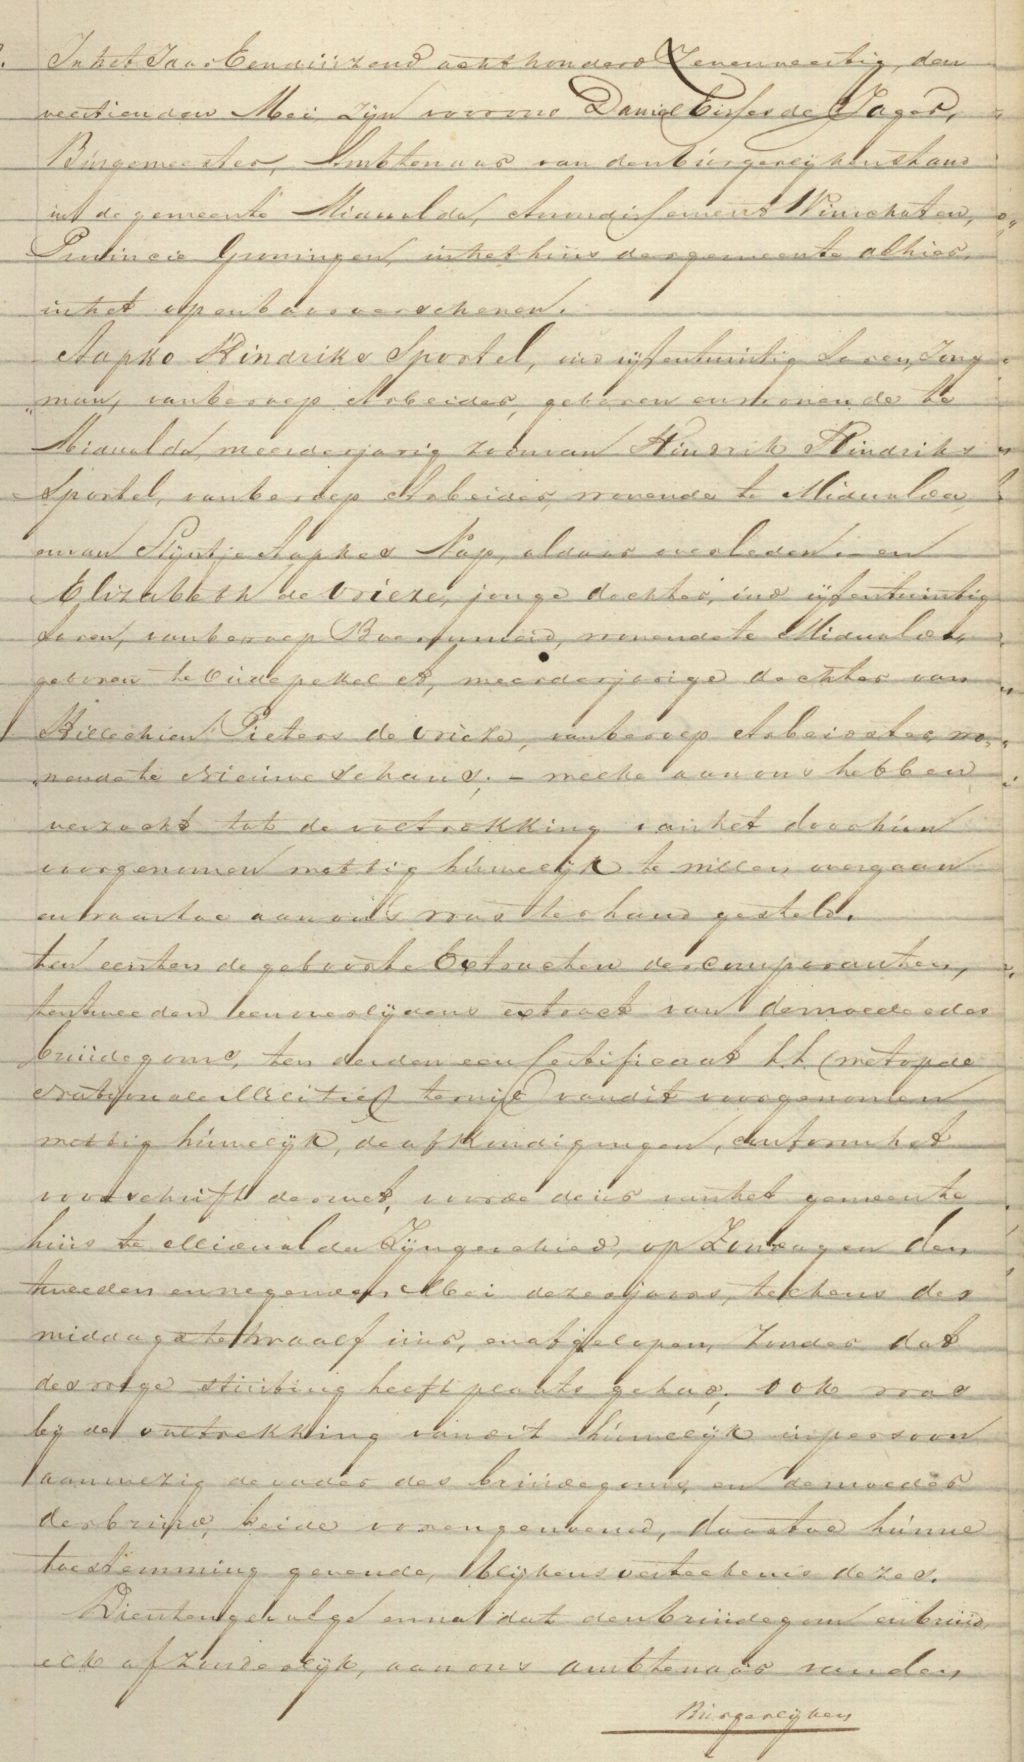 In het Jaar Eenduizend achthonderd Zevenveertig, den
veertienden Mei zijn voor ons Daniel Eisses de Jager,
Burgemeester, Ambtenaar van den burgerlijken stand
in de gemeente Midwolda, Arrondissement Winschoten,
Provincie Groningen, in het huis der gemeente alhier,
in het openbaar verschenen.
Aapko Hindriks Sportel, oud vijfentwintig Jaren, Jong
"man, van beroep Arbeider, geboren en wonende te
Midwolda, meerderjarig zoon van Hindrik Hindriks
Sportel, van beroep Arbeider, wonende te Midwolda,
en van Stijntje Aapkes Nap, aldaar overleden. – en
Elizabeth de Vrieze, jonge dochter, oud vijfentwintig
Jaren, van beroep Boeremeid, wonende te Midwolda,
geboren te Oude pekel A, meerderjarige dochter van
Hillechien Pieters de Vrieze, van beroep Arbeidster, wo"
"nende te Nieuwe Schans; – welke aan ons hebben
verzocht tot de voltrekking van het door hun
voorgenomen wettig huwelijk te willen overgaan
en waartoe aan ons was ter hand gesteld.
ten eersten de geboorte Extracten der comparanten,
ten tweeden een overlijdens extract van de moeder des
bruidegoms, ten derden een Certificaat L.L. (wet op de
Nationale Militie) terwijl van dit voorgenomen
wettig huwelijk, de afkondigingen, conform het
voorschrift der wet, voor de deur van het gemeente
huis te Midwolda Zijn geschied, op Zondagen den
tweeden en negenden Mei dezes jaars, telkens des
middags te twaalf uur, en afgelopen, zonder dat
des wege stuiting heeft plaats gehad; ook was
bij de voltrekking van dit huwelijk in persoon
aanwezig de vader des bruidegoms, en de moeder
der bruid, beide voren genoemd, daartoe hunne
toestemming gevende, blijkens vertekenis dezes.
Dientengevolge en nadat den bruidegom en bruid,
elk afzonderlijk, aan ons ambtenaar van den
Burgerlijken